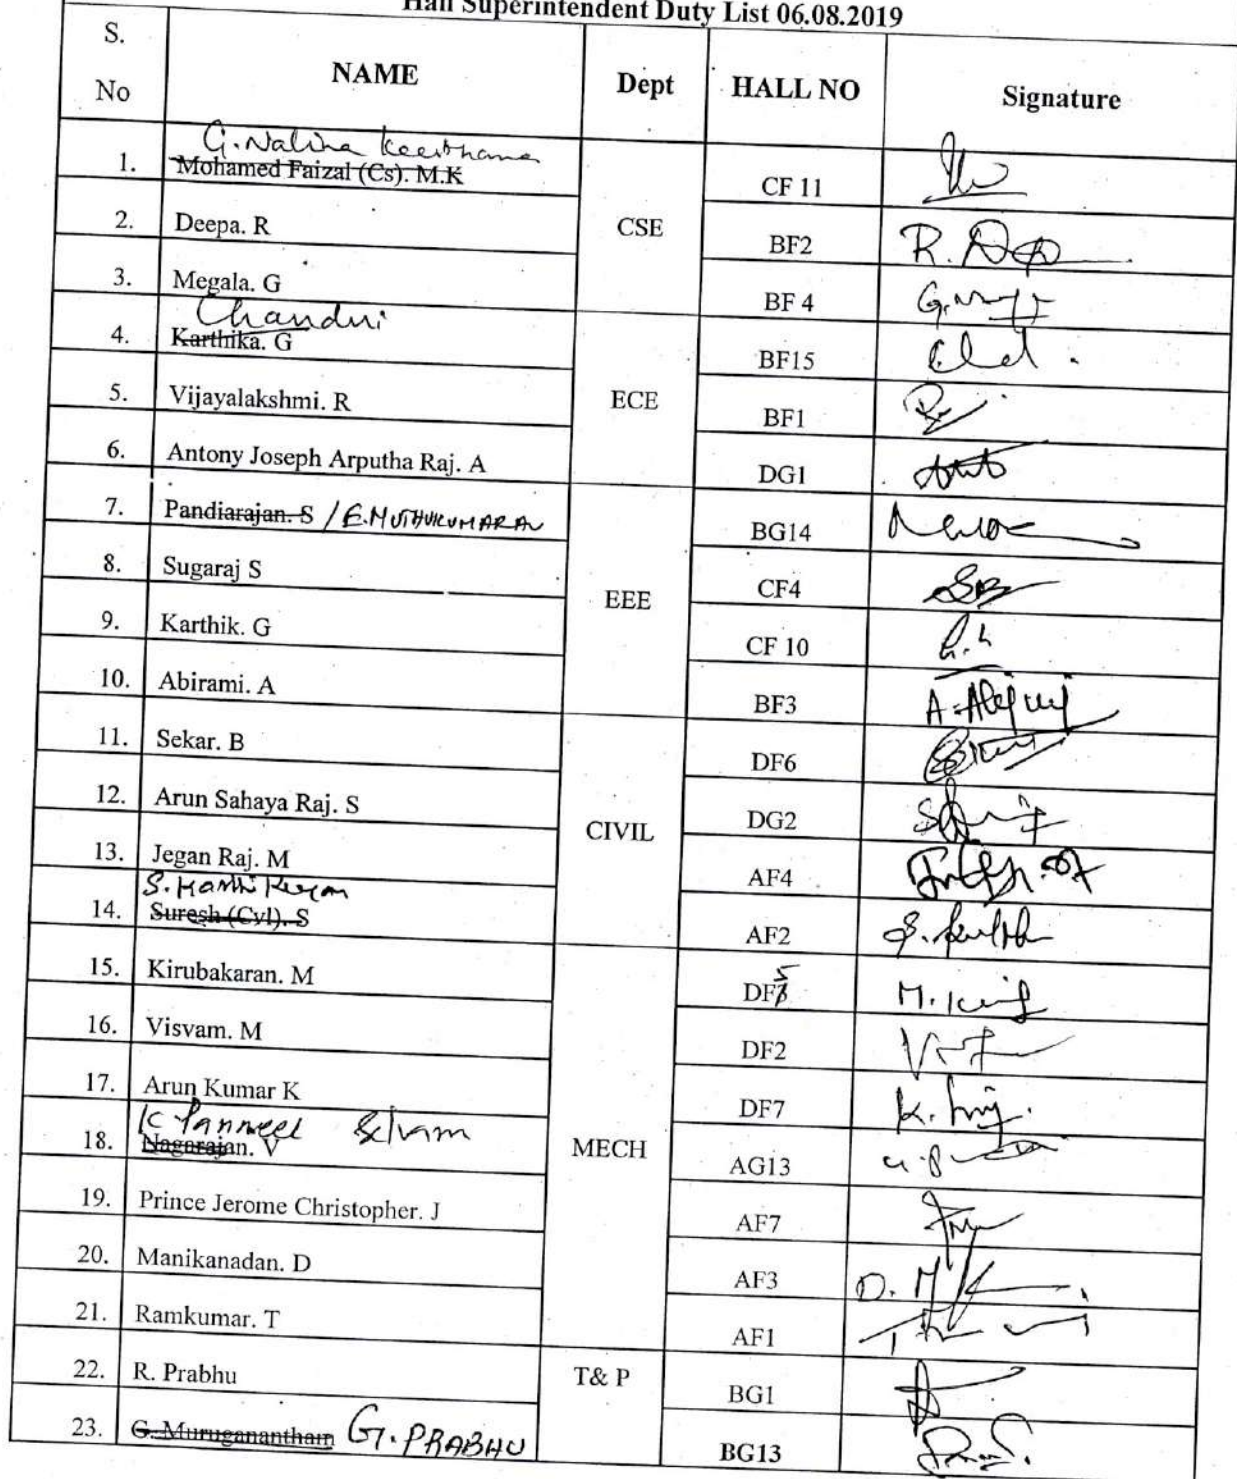 Hall Superintendent Duty List 06.08.2019
S. No NAME Dept HALL NO Signature
G. Nalina Keerthana
1. Mohamed Faizal (Cs). M.K CF 11
2. Deepa. R CSE BF2 R.
3. Megala. G BF 4
Chandni
4. Karthika. G BF15
5. Vijayalakshmi. R ECE BF1
6. Antony Joseph Arputha Raj. A DG1
7. Pandiarajan. S / E.MUTHUKUMARAN BG14
8. Sugaraj S CF4
9. Karthik. G EEE CF 10
10. Abirami. A BF3
11. Sekar. B DF6
12. Arun Sahaya Raj. S CIVIL DG2
13. Jegan Raj. M AF4
S. Karthikeyan
14. Suresh (Cvl). S AF2
15. Kirubakaran. M DF5
16. Visvam. M DF2
17. Arun Kumar K DF7
K Panneel Selvam
18. Nagarajan. V MECH AG13
19. Prince Jerome Christopher. J AF7
20. Manikanadan. D AF3
21. Ramkumar. T AF1
22. R. Prabhu T& P BG1
23. G. Muruganantham G. PRABHU BG13